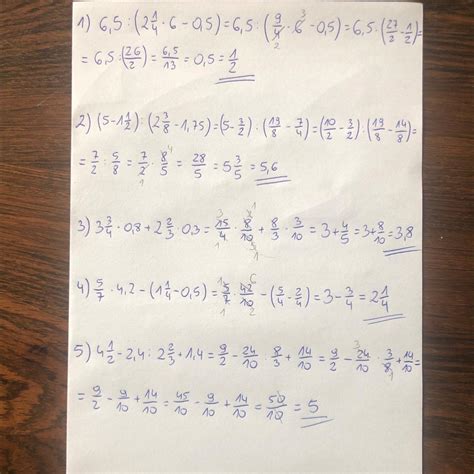 1) 6,5 : (2 1/4 · 6 - 0,5) = 6,5 : (9/4 · 6 - 0,5) = 6,5 · (27/2 - 1/2) =
= 6,5 : (26/2) = 6,5/13 = 0,5 = 1/2
2) (5 - 1 1/2) : (2 3/8 - 1,75) = (5 - 3/2) : (19/8 - 7/4) = (10/2 - 3/2) : (19/8 - 14/8) =
= 7/2 : 5/8 = 7/2 · 8/5 = 28/5 = 5 3/5 = 5,6
3) 3 3/4 · 0,8 + 2 2/3 · 0,3 = 15/4 · 8/10 + 8/3 · 3/10 = 3 + 4/5 = 3 + 8/10 = 3,8
4) 5/7 · 4,2 - (1 1/4 - 0,5) = 5/7 · 42/10 - (5/4 - 2/4) = 3 - 3/4 = 2 1/4
5) 4 1/2 - 2,4 : 2 2/3 + 1,4 = 9/2 - 24/10 · 8/3 + 14/10 = 9/2 - 24/10 · 3/8 + 14/10 =
= 9/2 - 9/10 + 14/10 = 45/10 - 9/10 + 14/10 = 50/10 = 5